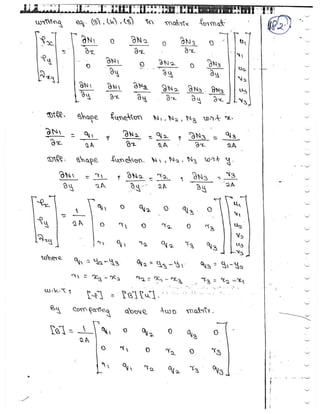 writing eq (3), (4), (5) in matrix format
[ex ey γxy] = [∂N1/∂x 0 ∂N2/∂x 0 ∂N3/∂x 0
0 ∂N1/∂y 0 ∂N2/∂y 0 ∂N3/∂y
∂N1/∂y ∂N1/∂x ∂N2/∂y ∂N2/∂x ∂N3/∂y ∂N3/∂x] [u1 v1 u2 v2 u3 v3]
Diff. shape function N1, N2, N3 w.r.t x.
∂N1/∂x = q1/2A , ∂N2/∂x = q2/2A , ∂N3/∂x = q3/2A
Diff. shape function. N1, N2, N3 w.r.t y.
∂N1/∂y = r1/2A , ∂N2/∂y = r2/2A , ∂N3/∂y = r3/2A
[ex ey γxy] = 1/2A [q1 0 q2 0 q3 0
0 r1 0 r2 0 r3
r1 q1 r2 q2 r3 q3] [u1 v1 u2 v2 u3 v3]
where q1 = y2-y3 q2 = y3-y1 q3 = y1-y2
r1 = x3-x2 r2 = x1-x3 r3 = x2-x1
w.k.T, [e] = [B][u].
By comparing above two matrix.
[B] = 1/2A [q1 0 q2 0 q3 0
0 r1 0 r2 0 r3
r1 q1 r2 q2 r3 q3]